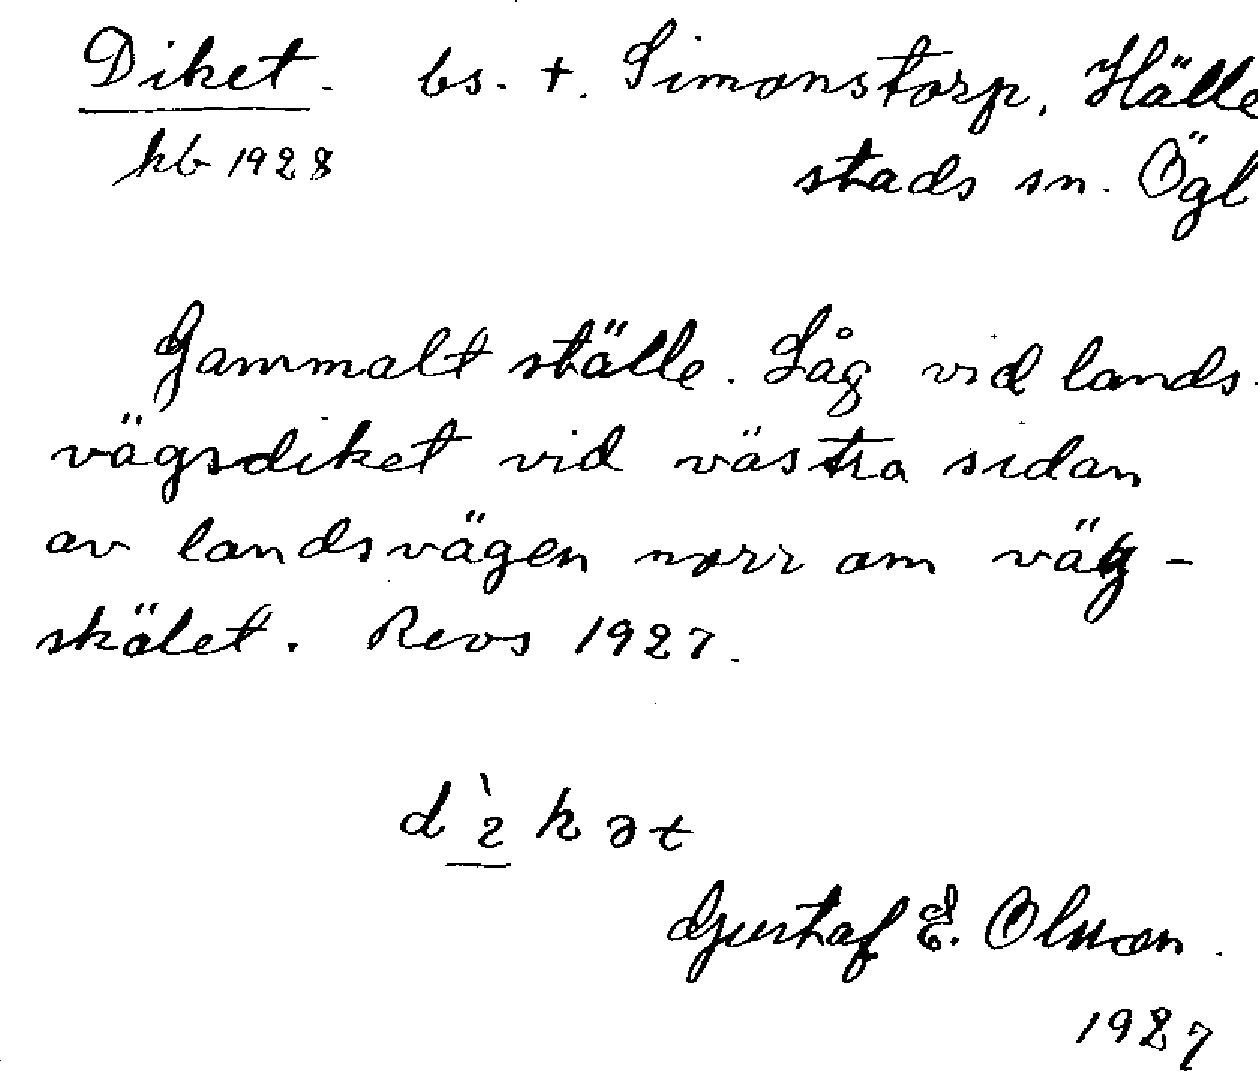 Diket. bs. t. Simonstorp, Hälle
kb 1928 stads sn. Ögl
Gammalt ställe. Låg vid lands-
vägsdiket vid västra sidan
av landsvägen norr om väg-
skälet. Revs 1927.
d ì k ə t
Gustaf E. Olsson.
1927